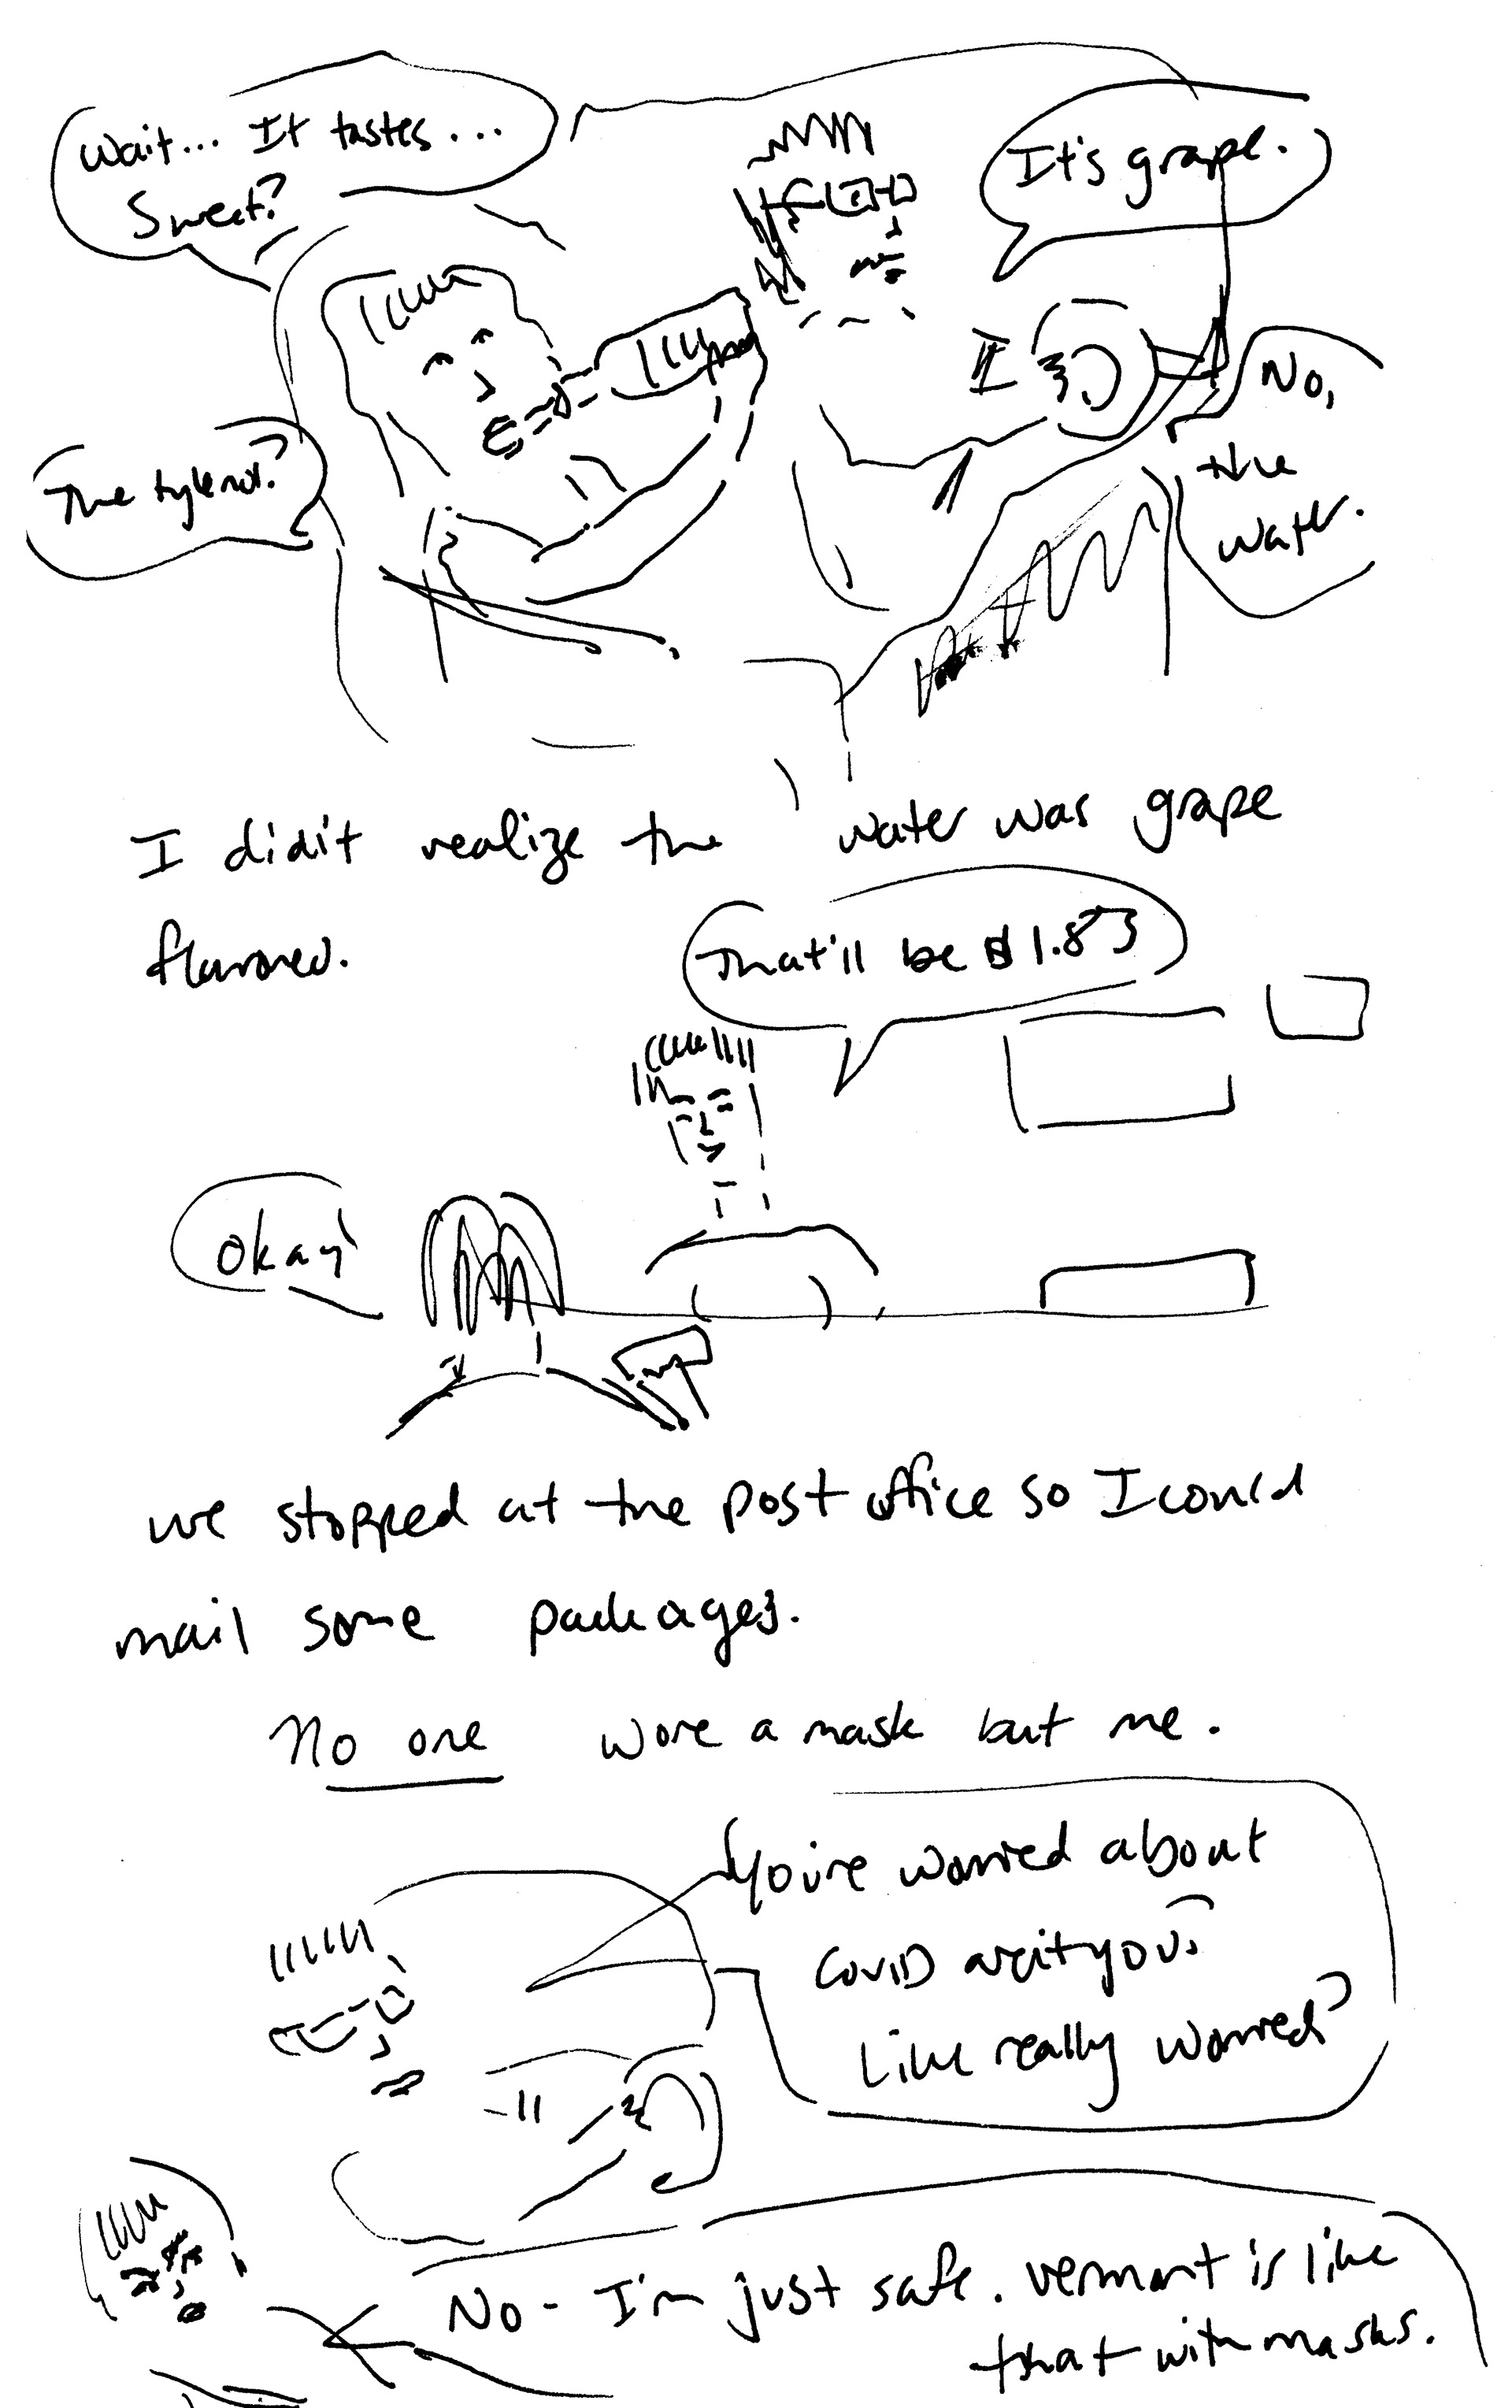 Wait... It tastes...
Sweet?
It's grape.
The tylenol?
No,
the
water.
I didn't realize the water was grape
flavored.
That'll be $1.83
okay!
we stopped at the post office so I could
mail some packages.
No one wore a mask but me.
You're worried about
COVID aren't you?
Like really worried?
No - I'm just safe. Vermont is like
that with masks.